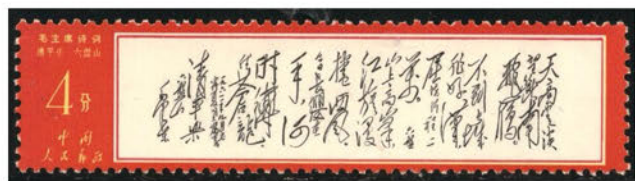 毛主席诗词
清平乐 六盘山
4分
中国
人民邮政
天高云淡
望断南
飞雁
不到长城
非好汉
屈指行程二
万 六盘
山上高峰
红旗漫
卷西风
今日长缨在
手 何
时缚
住苍龙
清平乐
毛泽东